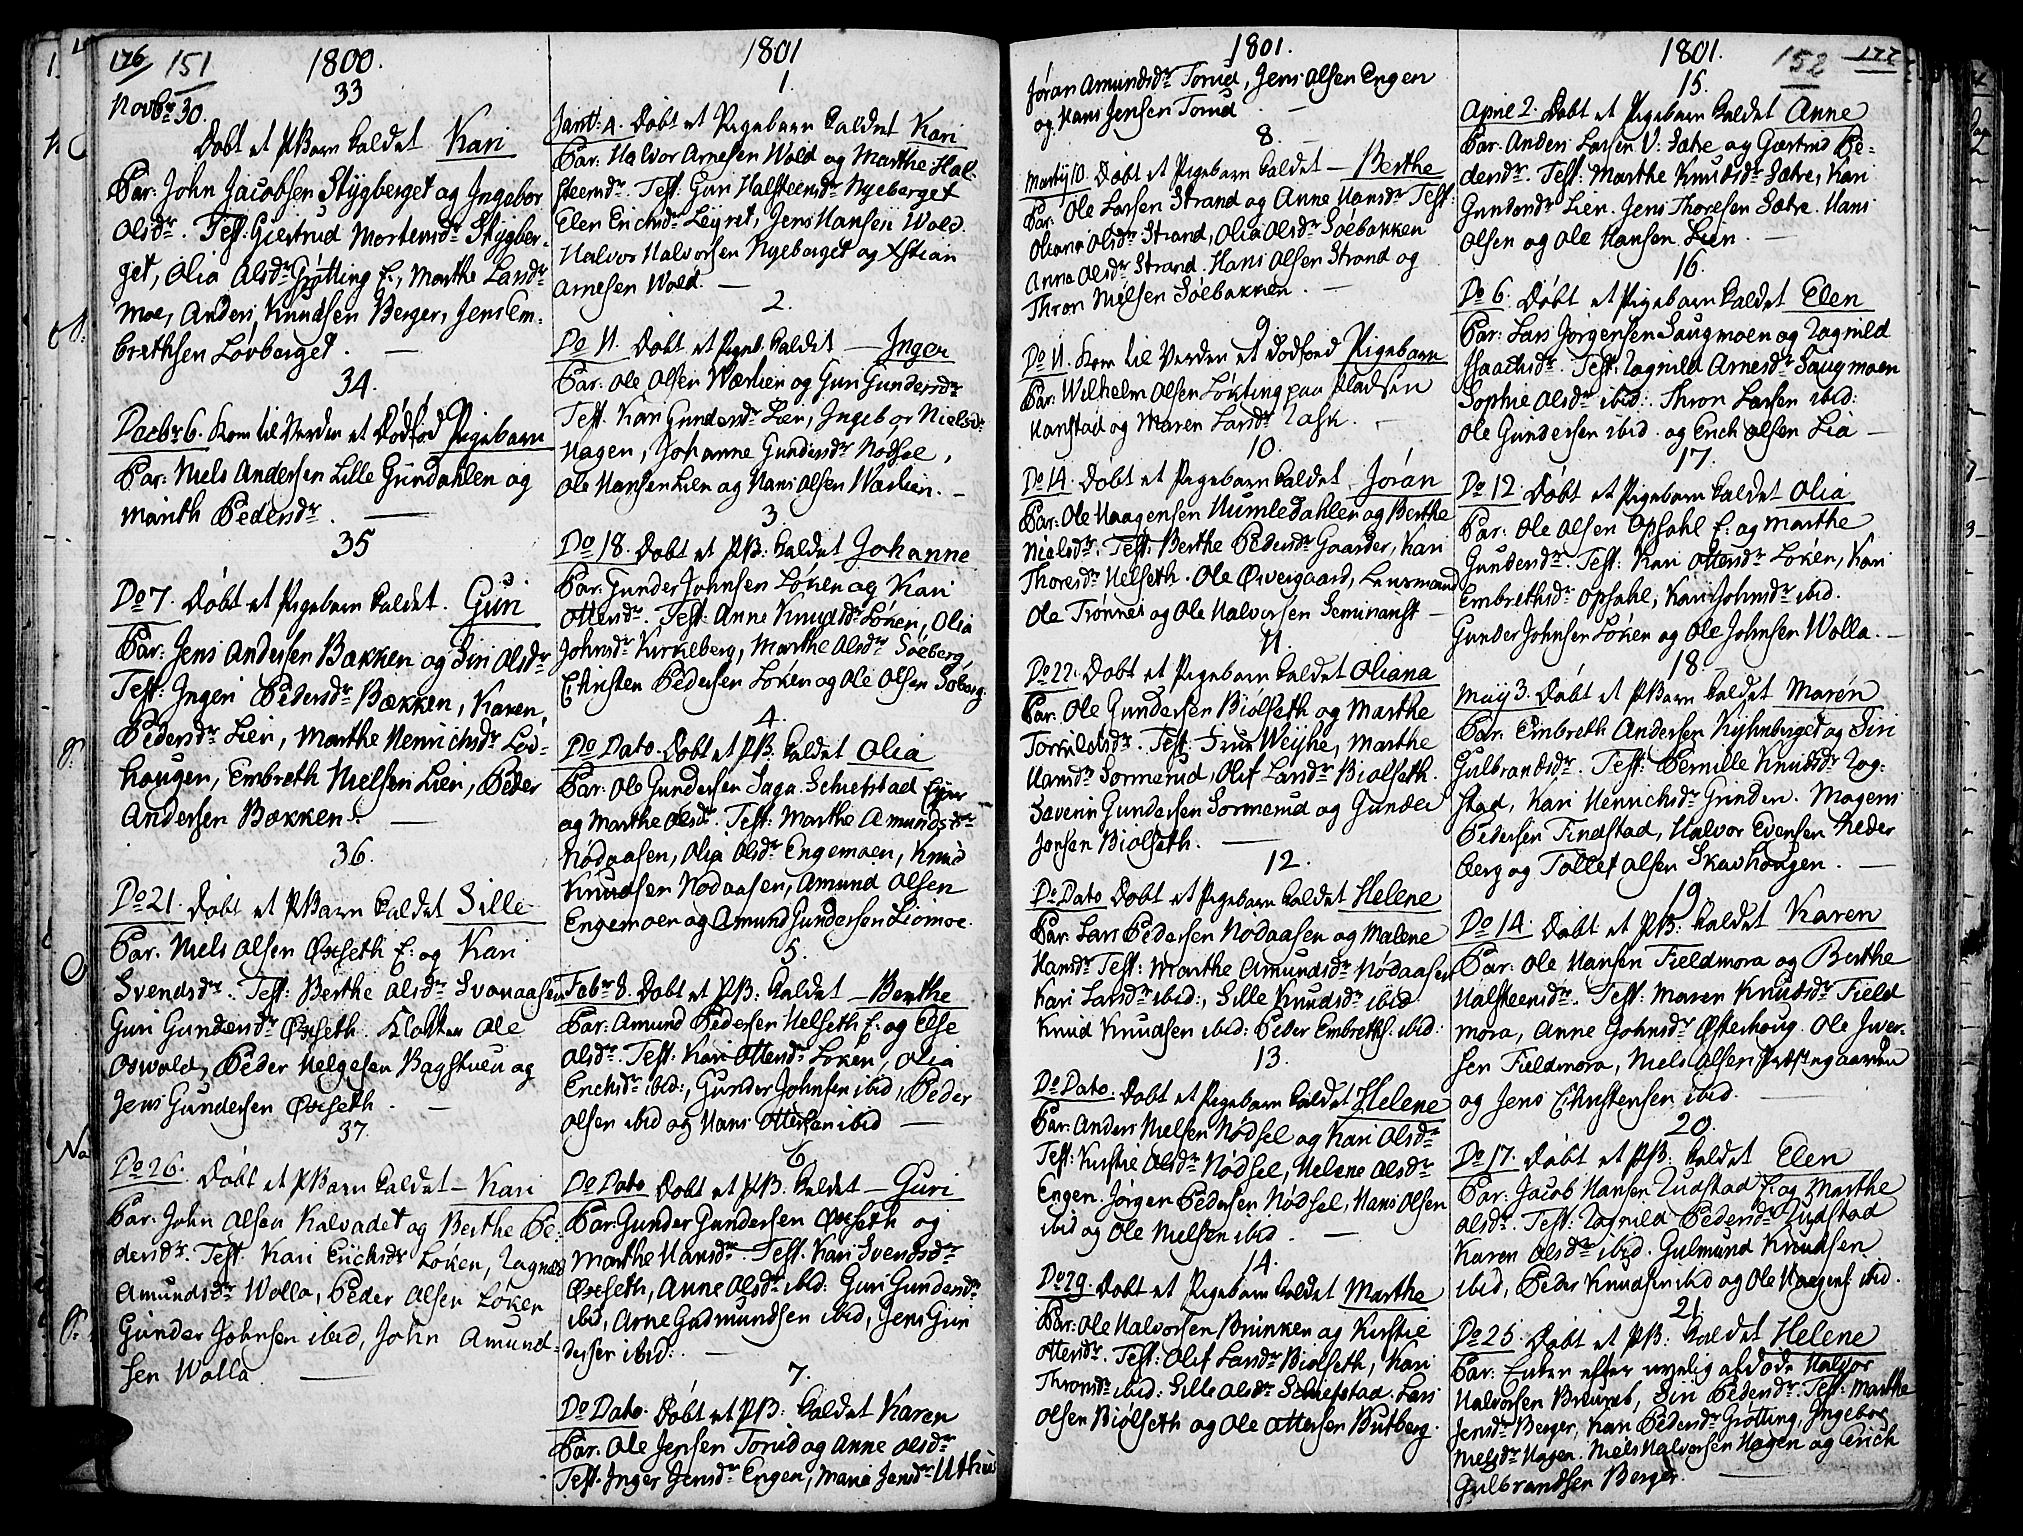 176 151 1800.
33
Novbr 30.
Døbt et PBarn kaldet Kari
Par: John Jacobsen Stygberget og Ingebor
Olsdr. Test: Giertrud Mortensdr Stygber-
get, Olia Olsdr Grøtting E., Marthe Larsdr
Moe, Anders Knudsen Berger, Jens Em-
brethsen Løvberget. —
34.
Decbr 6. Kom til Verden et Dødfød Pigebarn
Par: Niels Andersen Lille Gundahlen og
Marith Pedersdr. —
35
Do 7. Døbt et Pigebarn kaldet. Guri
Par: Jens Andersen Bækken og Siri Olsdr
Test: Ingeri Pedersdr Bækken, Karen
Pedersdr Lien, Marthe Henrichsdr Lov-
hougen, Embreth Nielsen Lien, Peder
Andersen Bækken. —
36.
Do 21. Døbt et PBarn kaldet Sille
Par. Niels Olsen Øxseth E: og Kari
Svendsdr. Test: Berthe Olsdr Svenaasen
Guri Gundersdr Øxseth. Klokker Ole
Oswold, Peder Helgesen Bagstuen og
Jens Gundersen Øxseth. —
37.
Do 26. Døbt et PBarn kaldet — Kari
Par: John Olsen Kalvadet og Berthe Pe-
dersdr. Test. Kari Erichsdr Løken, Ragnild
Amundsdr Wolla, Peder Olsen Løken
Gunder Johnsen ibid, John Amund-
sen Wolla. —
1801
1.
Janv: 4. Døbt et Pigebarn kaldet Kari
Par: Halvor Arnesen Wold og Marthe Hal-
steensdr. Test: Guri Halsteensdr Nyeberget
Elen Erichsdr Leyret, Jens Hansen Wold.
Halvor Halvorsen Nyeberget og Xstian
Arnesen Wold. —
2.
Do 11. Døbt et Pigeb. kaldet — Inger
Par: Ole Olsen Wæslien og Guri Gundersdr
Test. Kari Gundersdr Lien, Ingebor Nielsdr
Hagen, Johanne Gundersdr Nødsel,
Ole Hansen Lien og Hans Olsen Wæslien. —
3.
Do 18. Døbt et PB: kaldet Johanne
Par: Gunder Johnsen Løken og Kari
Ottersdr. Test: Anne Knudsdr Løken, Olia
Johnsdr Kirkeberg, Marthe Olsdr Søeberg,
Christen Pedersen Løken og Ole Olsen Søberg.
4.
Do Dato. Døbt et PB. kaldet Olia
Par: Ole Gundersen Saga. Schiefstad Eyer
og Marthe Olsdr. Test: Marthe Amundsdr
Nødaasen, Olia Olsdr Engemoen, Knud
Knudsen Nødaasen, Amund Olsen
Engemoen og Amund Gundersen Liomoe.
5.
Febr 8. Døbt et PB: kaldet — Berthe
Par: Amund Pedersen Helseth E: og Else
Olsdr. Test: Kari Ottersdr Løken, Olia
Erichsdr ibid:, Gunder Johnsen ibid, Peder
Olsen ibid og Hans Ottersen ibid —
6.
Do Dato Døbt et PB. kaldet — Guri
Par: Gunder Gundersen Øxseth og
Marthe Hansdr Test: Kari Svendsdr
Øxseth, Anne Olsdr ibid: Guri Gundersdr
ibid, Arne Gudmundsen ibid, Jens Gun
dersen ibid: —
7.
Do Dato. Døbt et PB: kaldet Karen
Par. Ole Jensen Torud og Anne Olsdr
Test. Inger Jensdr Engen, Maria Jensdr Uthuus
1801.
Jøran Amundsdr Torud, Jens Olsen Engen
og Hans Jensen Torud —
8
Martij 10. Døbt et Pigebarn kaldet — Berthe
Par: Ole Larsen Strand og Anne Hansdr Test:
Oliana Olsdr Strand, Olia Olsdr Søebakken
Anna Olsdr Strand. Hans Olsen Strand og
Thron Nielsen Søebakken. —
9.
Do 11. Kom til Verden et dødfød Pigebarn
Par: Wilhelm Olsen Løkting paa Pladsen
Hanstad og Maren Larsdr Rask. —
10.
Do 14. Døbt et Pigebarn kaldet Jøran
Par: Ole Haagensen Humledahlen og Berthe
Nielsdr. Test: Berthe Pedersdr Gaarder, Kari
Thoresdr Helseth. Ole Øvergaard, Lensmand
Ole Trønnes og Ole Halvorsen Seminarist —
11.
Do 22. Døbt et Pigebarn kaldet Oliana
Par. Ole Gundersen Biølseth og Marthe
Torkildsdr. Test: Frue Weyhe, Marthe
Hansdr Sormerud, Olif Larsdr Biølseth.
Saverin Gundersen Sormerud og Gunder
Jonsen Biølseth. —
12.
Do Dato Døbt et Pigebarn kaldet Helene
Par. Lars Pedersen Nødaasen og Malene
Hansdr Test: Marthe Amundsdr Nødaasen
Kari Larsdr ibid:, Sille Knudsdr ibid
Knud Knudsen ibid: Peder Embreths. ibid:
13.
Do Dato. Døbt et Pigebarn kaldet Helene
Par: Anders Nielsen Nødsel og Kari Olsdr
Test: Kirstie Olsdr Nødsel, Helene Olsdr
Engen. Jørgen Pedersen Nødsel, Hans Olsen
ibid og Ole Nielsen ibid. —
14.
Do 29. Døbt et Pigebarn kaldet Marthe
Par: Ole Halvorsen Brinken og Kirstie
Ottersdr. Test: Olif Larsdr Biølseth, Kari
Thronsdr ibid: Sille Olsdr Schiefstad. Lars
Olsen Biølseth og Ole Ottersen Butberg.
1801. 152 177
15.
April 2. Døbt et Pigebarn kaldet Anne
Par. Anders Larsen V: Sætre og Giertrud Pe-
dersdr. Test: Marthe Knudsdr Sætre, Kari
Gundersdr Lien. Jens Thoresen Sætre. Hans
Olsen og Ole Hansen Lien. —
16.
Do 6. Døbt et Pigebarn kaldet Elen
Par: Lars Jørgensen Saugmoen og Ragnild
Isaachsdr. Test: Ragnild Arnesdr Saugmoen
Sophie Olsdr ibid: Thron Larsen ibid:
Ole Gundersen ibid. og Erich Olsen Lia —
17.
Do 12. Døbt et Pigebarn kaldet Olia
Par: Ole Olsen Opsahl E. og Marthe
Gundersdr. Test: Kari Ottersdr Løken, Kari
Embrethsdr Opsahl, Kari Johnsdr ibid.
Gunder Johnsen Løken og Ole Johnsen Wolla. —
18.
May 3. Døbt et PBarn kaldet Maren
Par. Embreth Andersen Kiølnberget og Siri
Gulbrandsdr. Test: Pernille Knudsdr Rog-
stad, Kari Henrichsdr Grinden. Mogens
Pedersen Findstad, Halvor Evensen Keder
berg og Tollef Olsen Skavhougen. —
19
Do 14. Døbt et PB: kaldet Karen
Par: Ole Hansen Fieldmora og Berthe
Halsteensdr. Test: Maren Knudsdr Field
mora, Anne Johnsdr Østerhoug. Ole Iver-
sen Fieldmora, Niels Olsen Præstegaarden
og Jens Christensen ibid. —
20.
Do 17. Døbt et PB: kaldet Elen
Par: Jacob Hansen Rudstad E: og Marthe
Olsdr. Test: Ragnild Pedersdr Rudstad
Karen Olsdr ibid. Gulmund Knudsen
ibid, Peder Knudsen ibid og Ole Haagens. ibid.
21.
Do 25. Døbt et PB: kaldet Helene
Par: Enken efter nyelig afdøde Halvor
Halvorsen Siri Pedersdr. Test: Marthe
Jensdr Berger, Kari Pedersdr Grøtting, Ingebor
Nielsdr Hagen. Niels Halvorsen Hagen og Erich
Gulbrandsen Berger. —